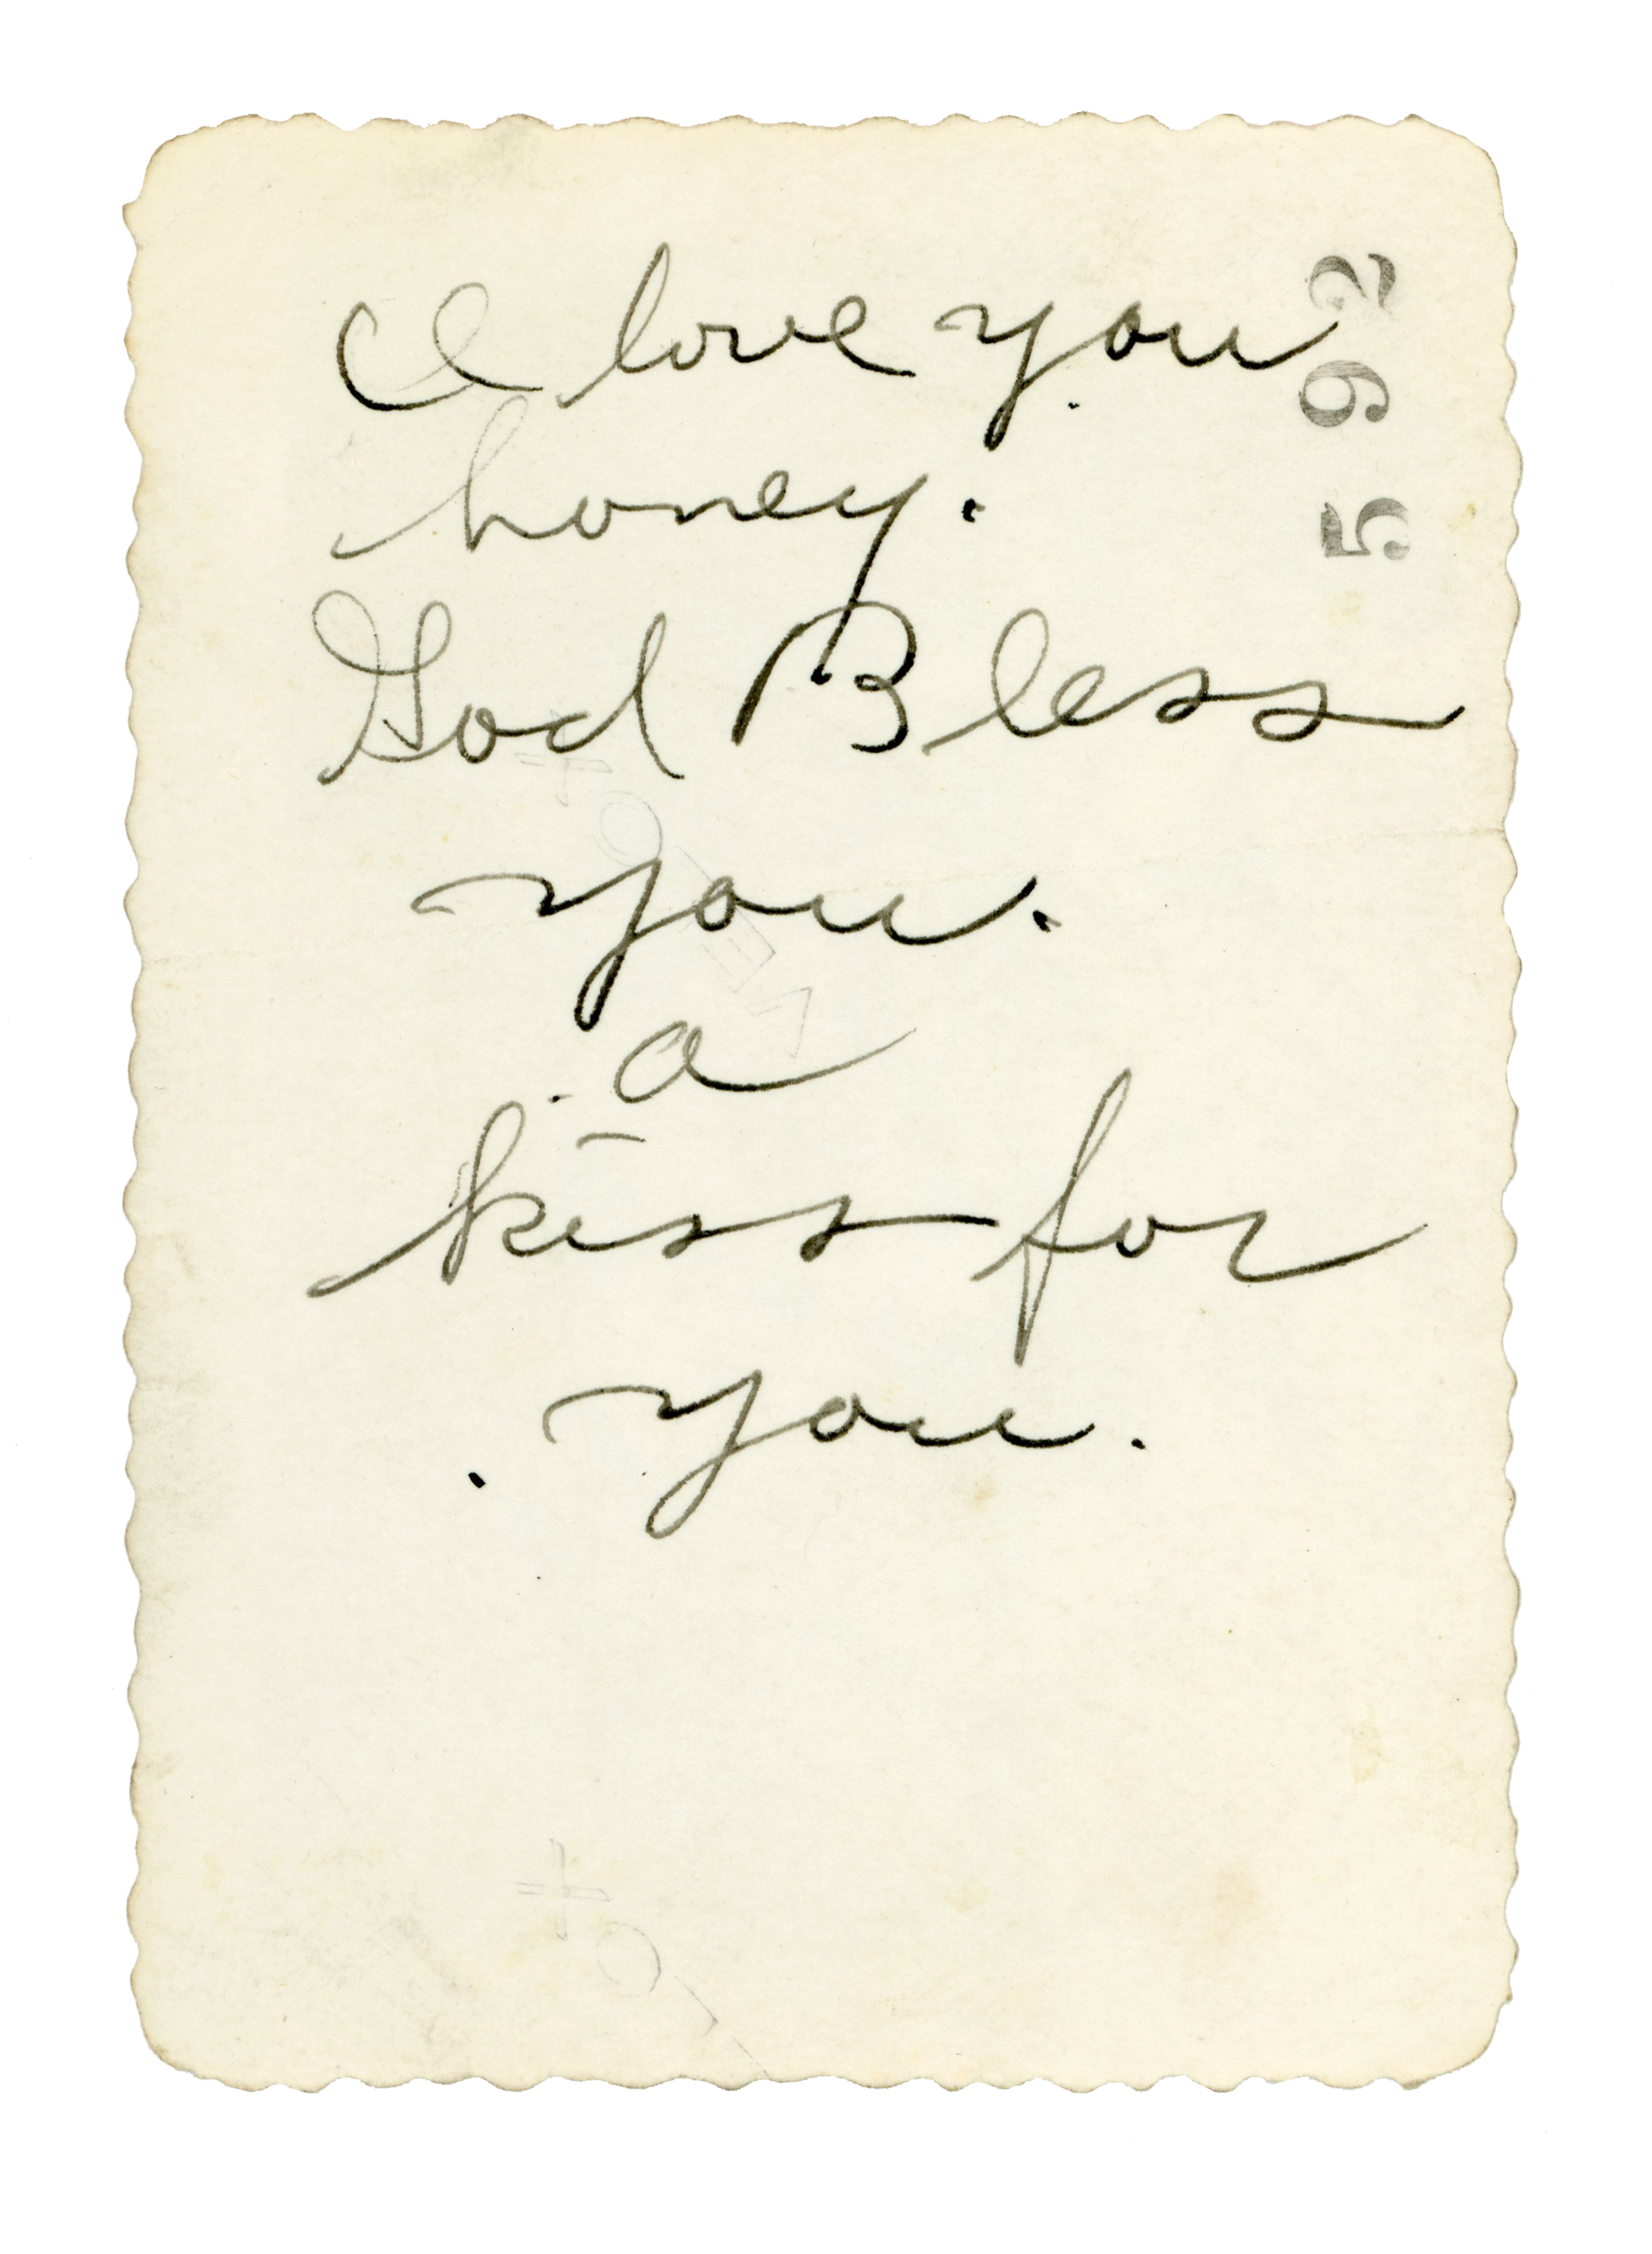 I love you
honey.
God Bless
you.
a
kiss for
you.
592